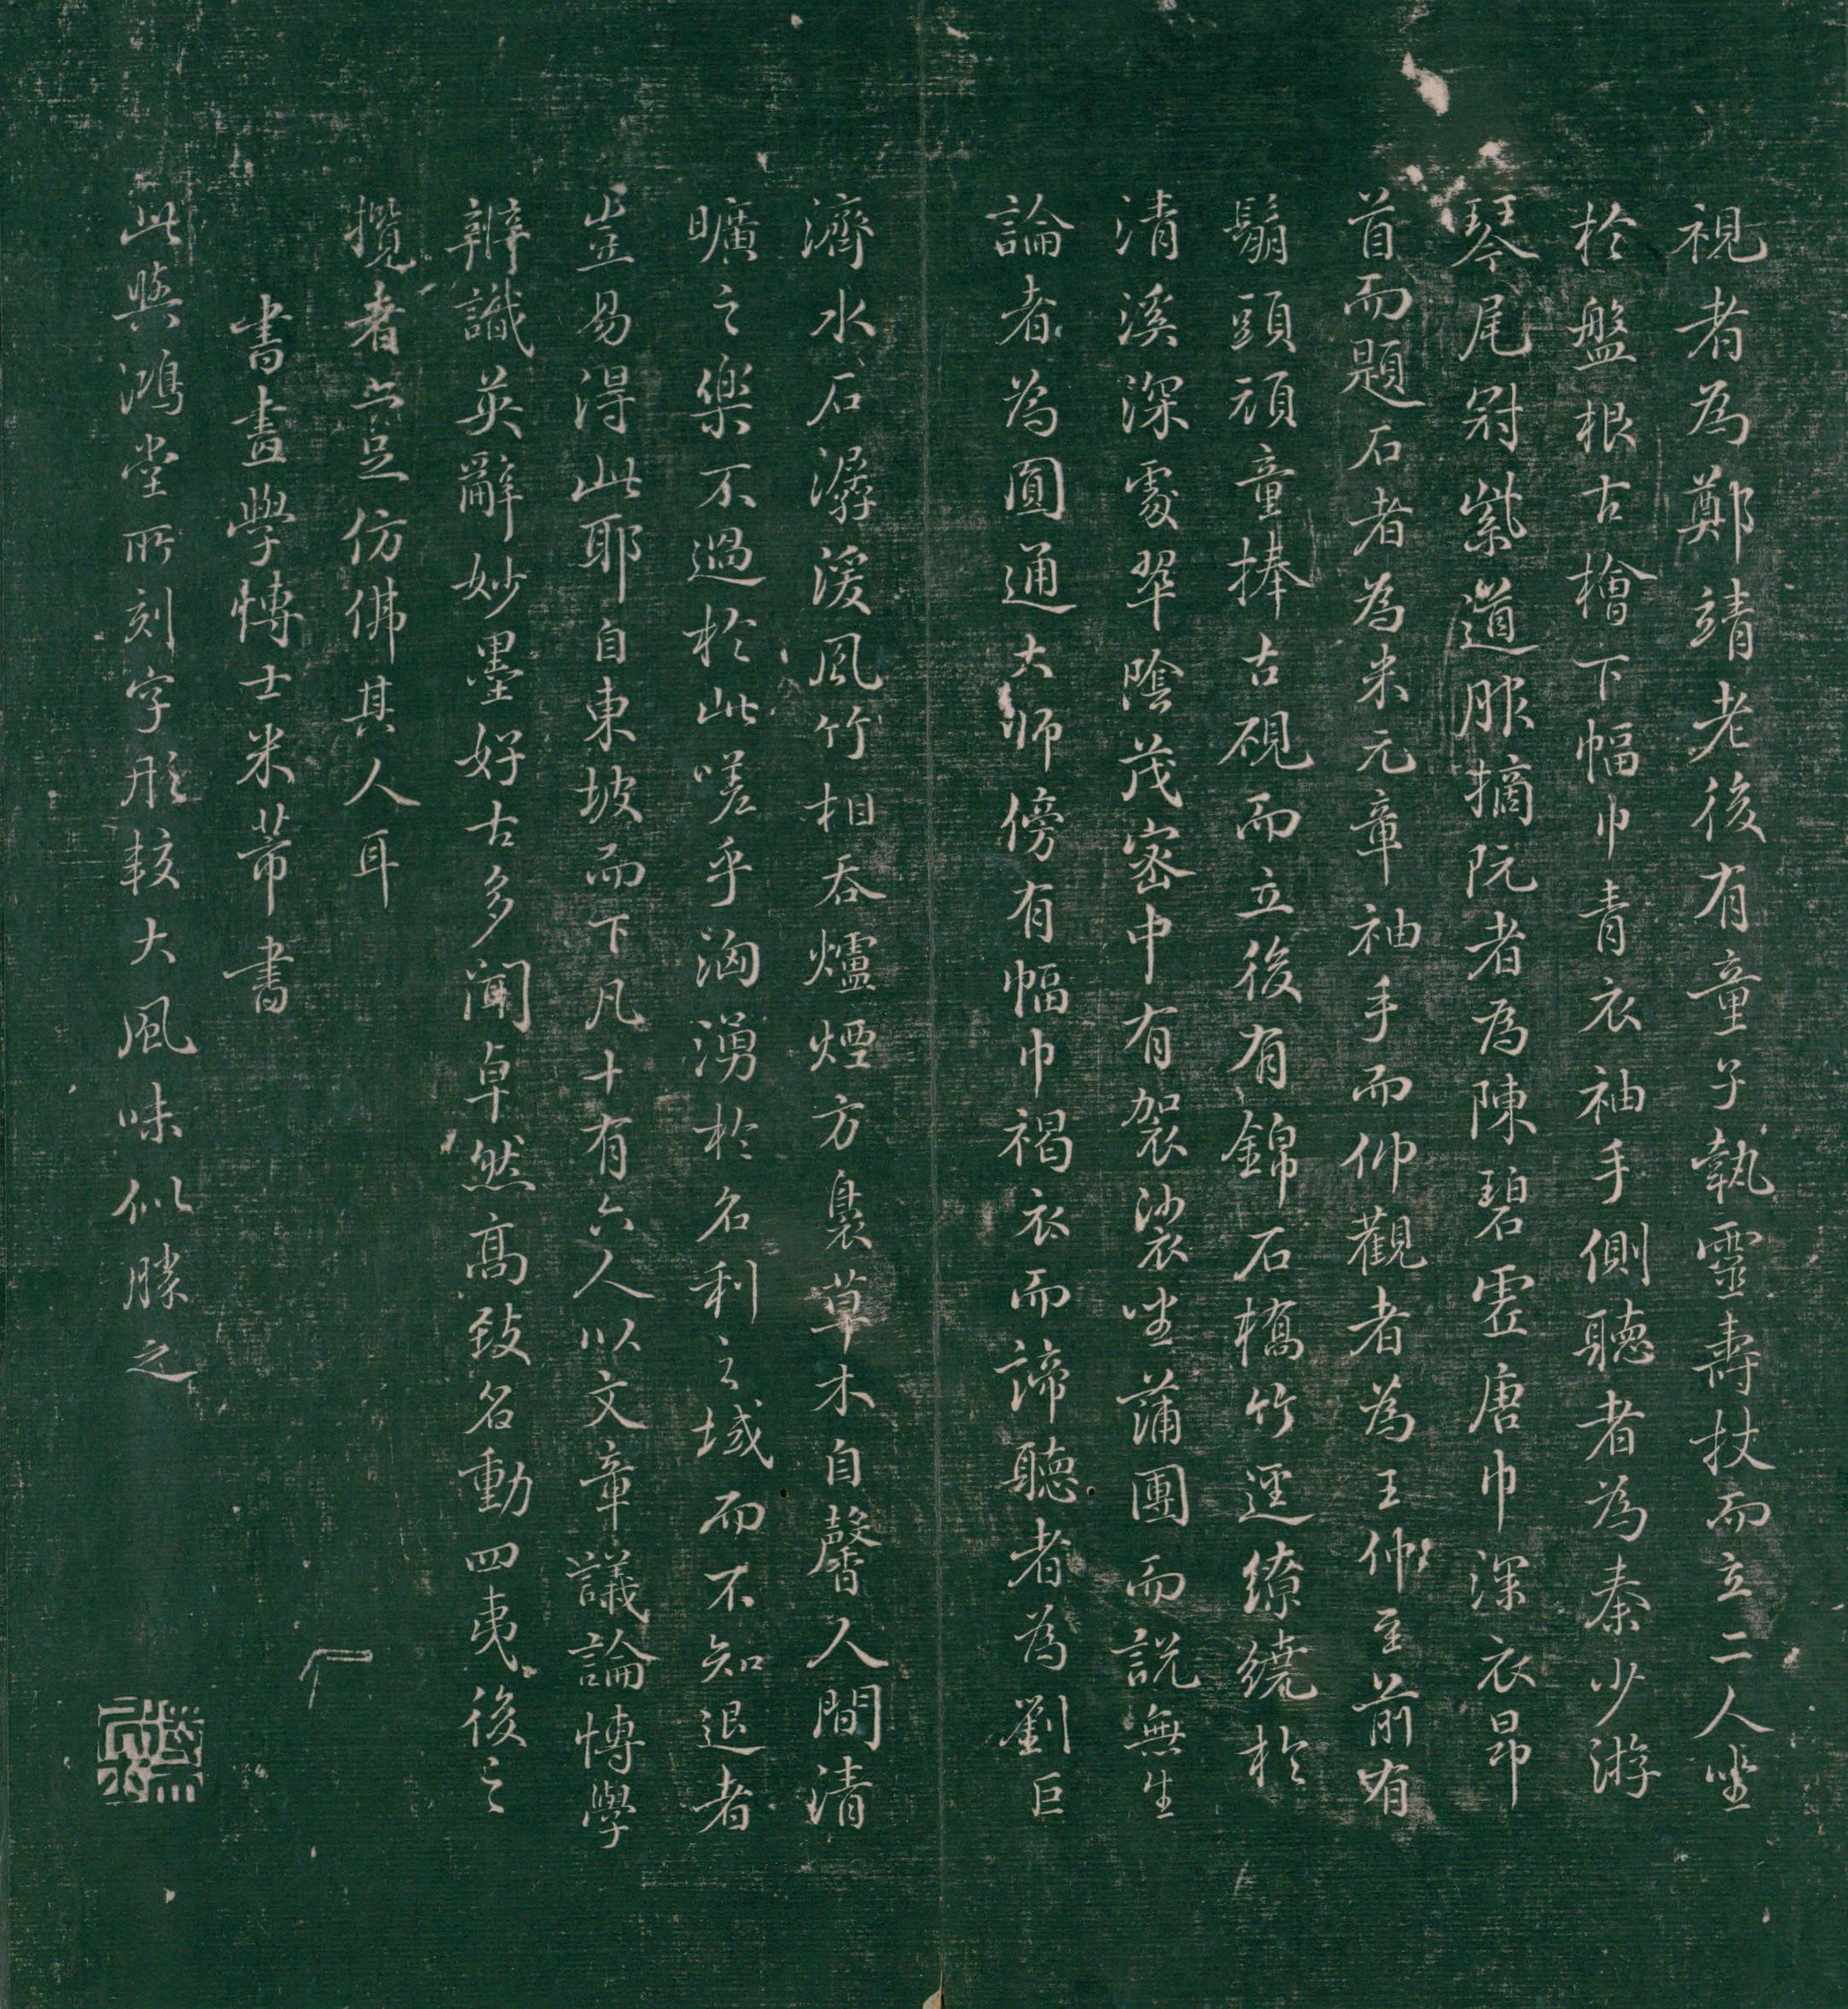 視者為鄭靖老後有童子執靈壽杖而立二人坐
於盤根古檜下幅巾青衣袖手側聽者為秦少游
琴尾冠紫道服摘阮者為陳碧虛唐巾深衣昂
首而題石者為米元章袖手而仰觀者為王仲至前有
鬅頭頑童捧古硯而立後有錦石橋竹逕繚繞於
清溪深處翠陰茂密中有袈裟坐蒲團而說無生
論者為圓通大師傍有幅巾褐衣而諦聽者為劉巨
濟水石潺湲風竹相吞爐煙方裊草木自馨人間清
曠之樂不過於此嗟乎洶湧於名利之域而不知退者
豈易得此耶自東坡而下凡十有六人以文章議論博學
辨識英辭妙墨好古多聞卓然高致名動四夷後之
攬者豈足仿佛其人耳
書畫學博士米芾書
此與鴻堂所刻字形較大風味似勝之